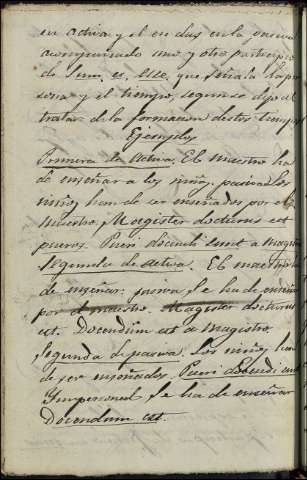 en activa y el en dus en la pasiva
acompañado uno y otro participio
de Sum, es, esse, que señala la per
sona y el tiempo, segun se dijo al
tratar de la formacion destos tiempos
Ejemplos
Primera de Activa. El maestro ha
de enseñar a los niños, pasiva Los
niños han de ser enseñados por el
Maestro. Magister docturus est
pueros. Pueri docendi sunt a Magistro
Segunda de activa. El maestro ha
de enseñar: pasiva Se ha de enseñar
por el maestro. Magister docturus
est. Docendum est a Magistro.
Segunda de pasiva. Los niños han
de ser enseñados. Pueri docendi sunt
Impersonal Se ha de enseñar
Docendum est.